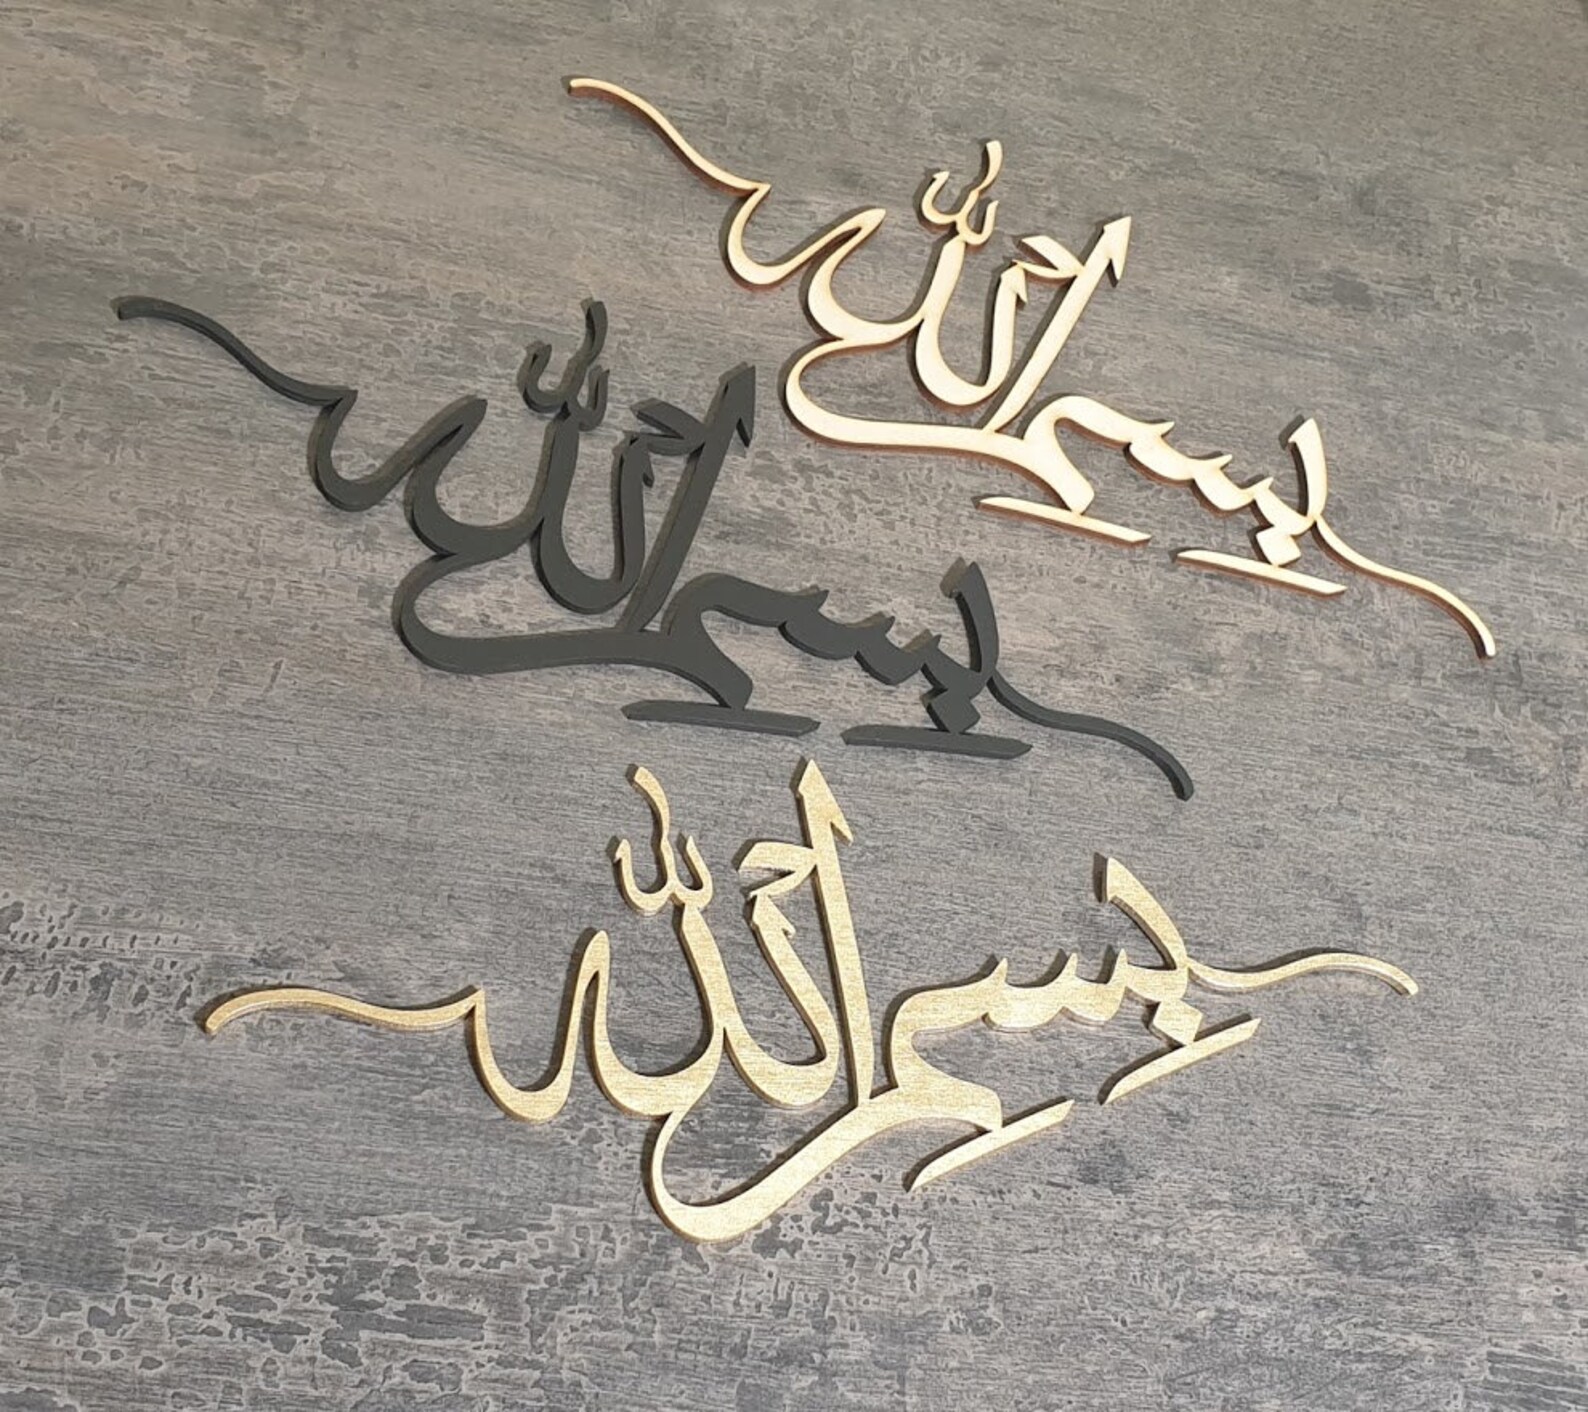 بسم الله
بسم الله
بسم الله